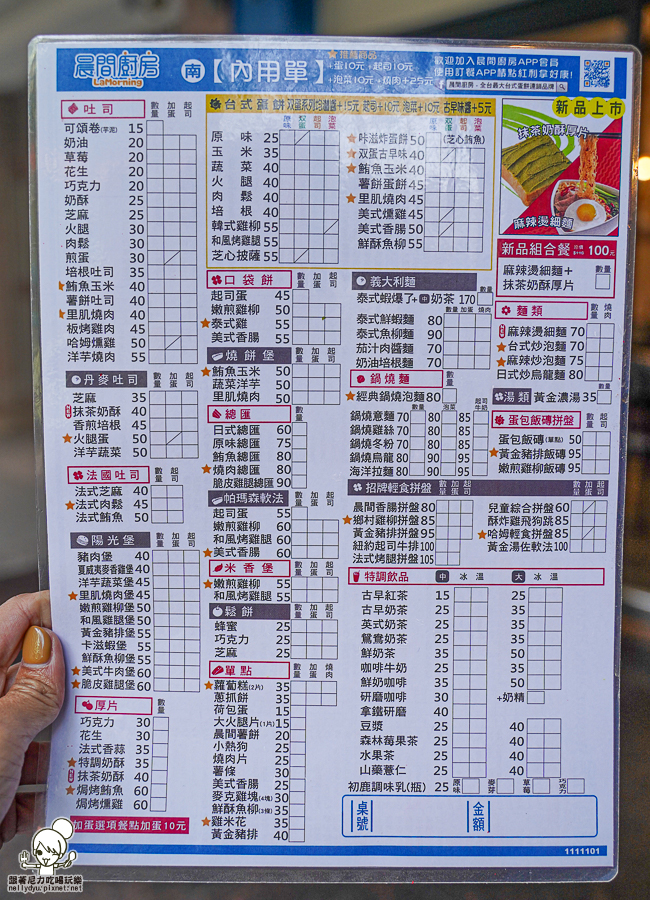 晨間廚房
LaMorning
南【內用單】
+蛋10元 +起司10元
+泡菜10元 +燒肉+25元
歡迎加入晨間廚房APP會員
使用訂餐APP請點紅利拿好康!
晨間廚房 - 全台最大台式蛋餅連鎖品牌
吐司 數量 加蛋 起司
可頌卷(芋泥) 15
奶油 20
草莓 20
花生 20
巧克力 20
奶酥 25
芝麻 25
火腿 30
肉鬆 30
煎蛋 30
培根吐司 35
鮪魚玉米 40
薯餅吐司 40
里肌燒肉 40
板烤雞肉 45
哈姆燻雞 50
洋芋燒肉 55
丹麥吐司 數量 加蛋 起司
芝麻 35
抹茶奶酥 40
香煎培根 45
火腿蛋 50
洋芋蔬菜 50
法國吐司 數量 加蛋 起司
法式芝麻 40
法式肉鬆 45
法式鮪魚 50
陽光堡 數量 加蛋 起司
豬肉堡 40
夏威夷麥香雞堡 40
洋芋蔬菜堡 45
里肌燒肉堡 45
嫩煎雞柳堡 50
和風雞腿堡 50
黃金豬排堡 55
卡滋蝦堡 55
鮮酥魚柳堡 55
美式牛肉堡 60
脆皮雞腿堡 60
厚片 數量
巧克力 30
花生 30
法式香蒜 35
特調奶酥 35
抹茶奶酥 40
焗烤鮪魚 60
焗烤燻雞 60
加蛋選項餐點加蛋10元
台式蛋餅 双蛋系列均湯醬+15元 起司+10元 泡菜+10元 古早味醬+5元
原味 双蛋 起司 泡菜
原味 25
玉米 35
蔬菜 40
火腿 40
肉鬆 40
培根 40
韓式雞柳 55
和風烤雞腿 55
芝心披薩 55
原味 双蛋 起司 泡菜
咔滋炸蛋餅 50 (芝心鮪魚)
双蛋古早味 40
鮪魚玉米 40
薯餅蛋餅 45
里肌燒肉 45
美式燻雞 45
美式香腸 50
鮮酥魚柳 55
口袋餅 數量 加蛋 起司
起司蛋 45
嫩煎雞柳 50
泰式雞 55
美式香腸 55
燒餅堡 數量 加蛋 起司
鮪魚玉米 50
蔬菜洋芋 50
里肌燒肉 50
總匯 數量
日式總匯 60
原味總匯 75
鮪魚總匯 80
燒肉總匯 80
脆皮雞腿總匯 90
帕瑪森軟法 數量 加蛋 起司
起司蛋 55
嫩煎雞柳 60
和風烤雞 60
美式香腸 60
米香堡 數量 加蛋 起司
嫩煎雞柳 55
和風烤雞 55
鬆餅 數量 加蛋 起司
蜂蜜 25
巧克力 25
芝麻 25
單點 數量 加蛋 燒肉
蘿蔔糕(2片) 35
蔥抓餅 35
荷包蛋 15
大火腿片(1片) 15
晨間薯餅 20
小熱狗 25
燒肉片 25
薯條 30
美式香腸 25
麥克雞塊(4塊) 30
鮮酥魚柳(3條) 35
雞米花 35
黃金豬排 40
義大利麵 數量
泰式蝦爆了+中奶茶 170
數量 加蛋 燒肉
泰式鮮蝦麵 80
泰式魚柳麵 90
茄汁肉醬麵 70
奶油培根麵 70
鍋燒麵 數量
經典鍋燒泡麵 80
數量 泡菜 起司牛奶
鍋燒意麵 70 80 85
鍋燒雞絲 70 80 85
鍋燒冬粉 70 80 85
鍋燒烏龍 80 90 95
海洋拉麵 80 90 95
招牌輕食拼盤 數量 加蛋 起司
晨間香腸拼盤 80
鄉村雞柳拼盤 85
黃金豬排拼盤 95
紐約起司牛排 100
法式烤腿拼盤 105
兒童綜合拼盤 60
酥炸雞飛狗跳 85
哈姆輕食拼盤 85
黃金湯佐軟法 100
特調飲品 中 冰 溫 大 冰 溫
古早紅茶 15 25
古早奶茶 25 35
英式奶茶 25 35
鴛鴦奶茶 25 35
鮮奶茶 35 50
咖啡牛奶 25 35
鮮奶咖啡 35 50
研磨咖啡 30 +奶精
拿鐵研磨 40
豆漿 25 40
森林莓果茶 25 40
水果茶 25 40
山藥薏仁 25 40
初鹿調味乳(瓶) 25 原味 麥芽 草莓 巧克力
桌號 金額
新品上市
抹茶奶酥厚片
麻辣燙細麵
新品組合餐 100元
麻辣燙細麵+
抹茶奶酥厚片
數量
麵類 數量 燒肉
麻辣燙細麵 70
台式炒泡麵 70
麻辣炒泡麵 75
日式炒烏龍麵 80
湯類 黃金濃湯 35
蛋包飯磚拼盤 數量 起司
蛋包飯磚(單點) 50
黃金豬排飯磚 95
嫩煎雞柳飯磚 95
1111101
跟著尼力吃喝玩樂
nellydyu.pixnet.net